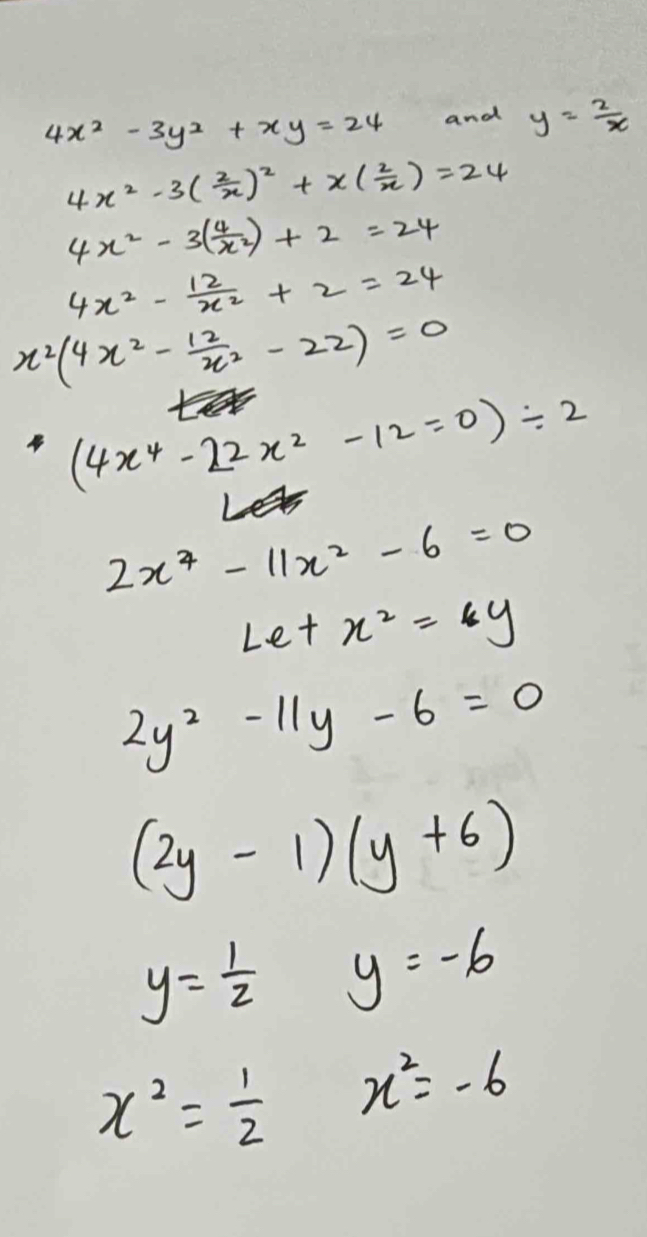 4x² - 3y² + xy = 24 and y = 2/x
4x² - 3(2/x)² + x(2/x) = 24
4x² - 3(4/x²) + 2 = 24
4x² - 12/x² + 2 = 24
x²(4x² - 12/x² - 22) = 0
* (4x⁴ - 22x² - 12 = 0) ÷ 2
2x⁴ - 11x² - 6 = 0
Let x² = y
2y² - 11y - 6 = 0
(2y - 1)(y + 6)
y = 1/2 y = -6
x² = 1/2 x² = -6